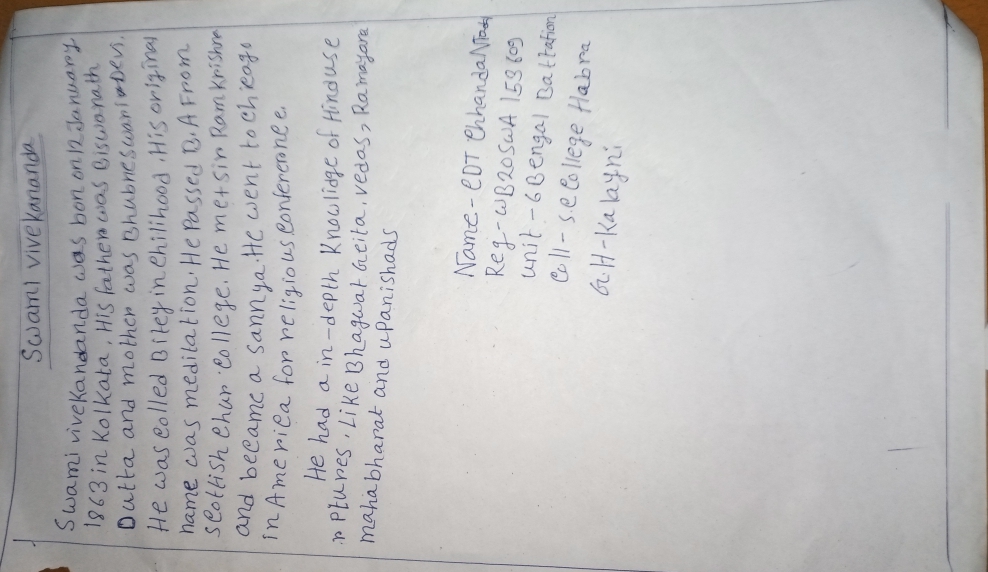 Swami vivekananda
Swami vivekandanda was bon on 12 January
1863 in Kolkata, His father was Biswanath
Dutta and mother was Bhubneswani Devi.
He was colled Biley in chilihood. His original
name was meditation. He Passed B.A From
Scottish Chur College. He met sir Ramkrishna
and became a sannya. He went to chicago
in America for religious conference.
He had a in-depth Knowlidge of Hinduse
Ptures. Like Bhagwat Geeita, vedas, Ramayana
mahabharat and upanishads
Name - CDT Chhanda
Reg - WB20SWA153609
unit - 6 Bengal Battation
Coll - S.C College Habra
G.H - Kalayni